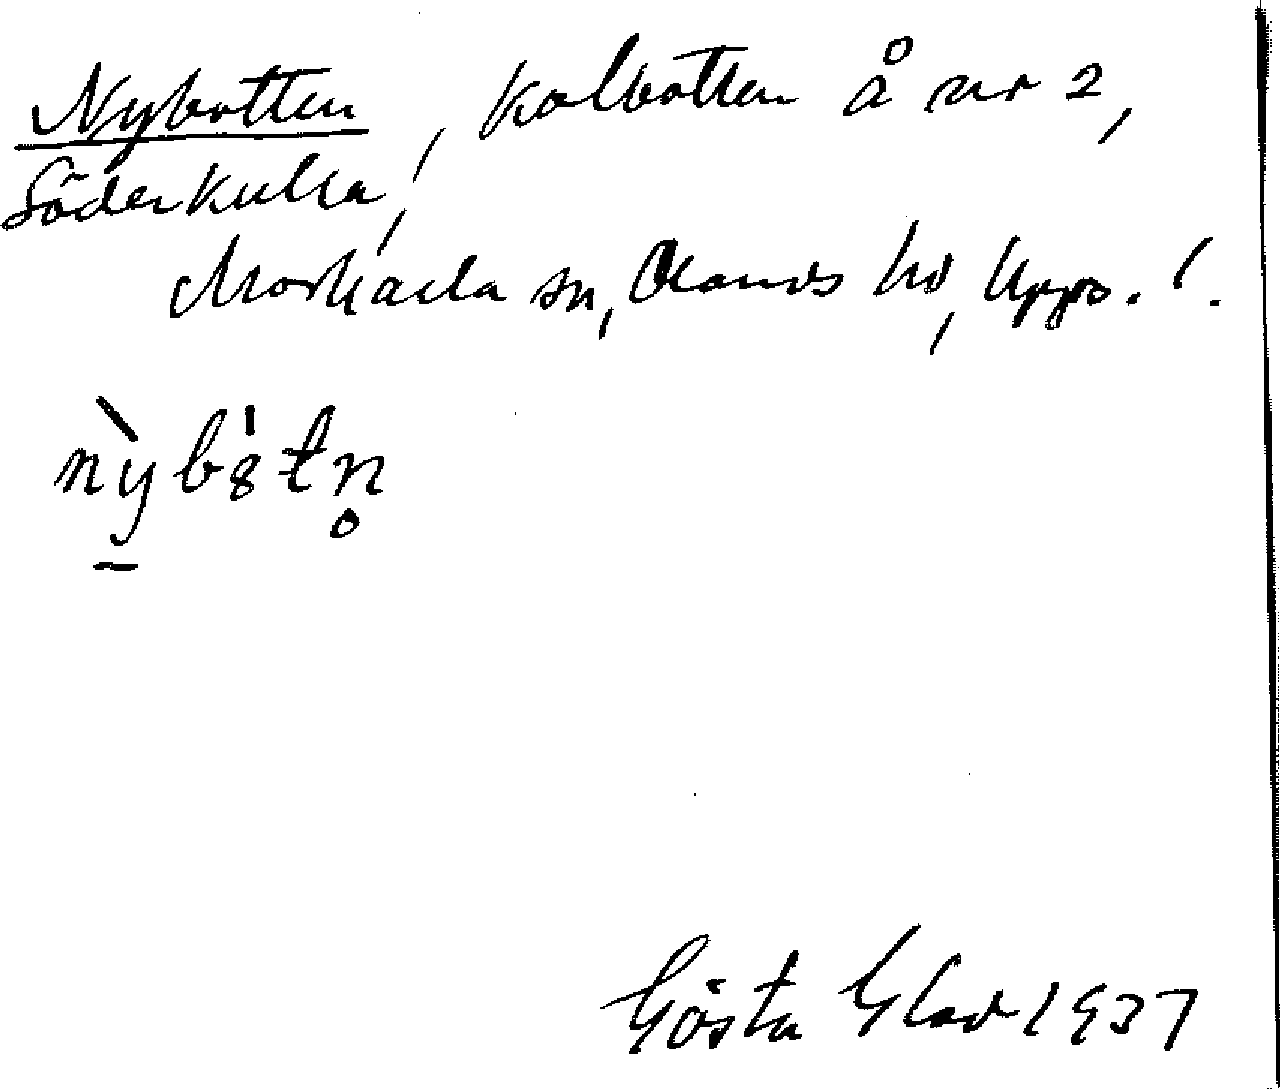 Nybotten, kolbotten å nr 2,
Söderkulla,
Morkarla sn, Olands hd, Upps. l.
nỳb8́tn̥
Gösta Glad 1937